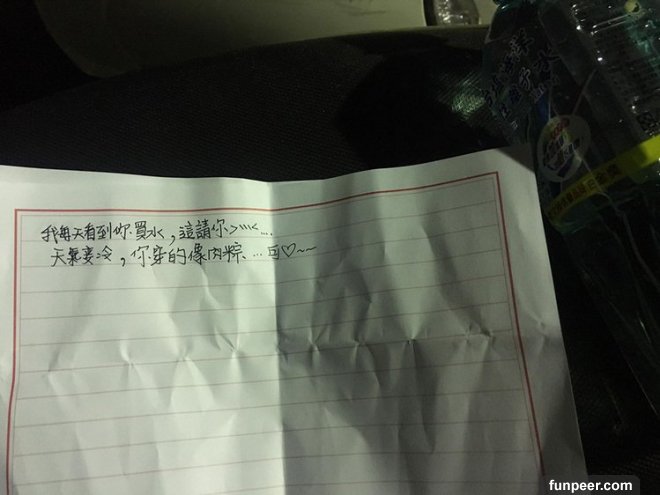 我每天看到你買水，這請你>\\\\<....
天氣變冷，你穿的像肉粽....可♡~~
funpeer.com